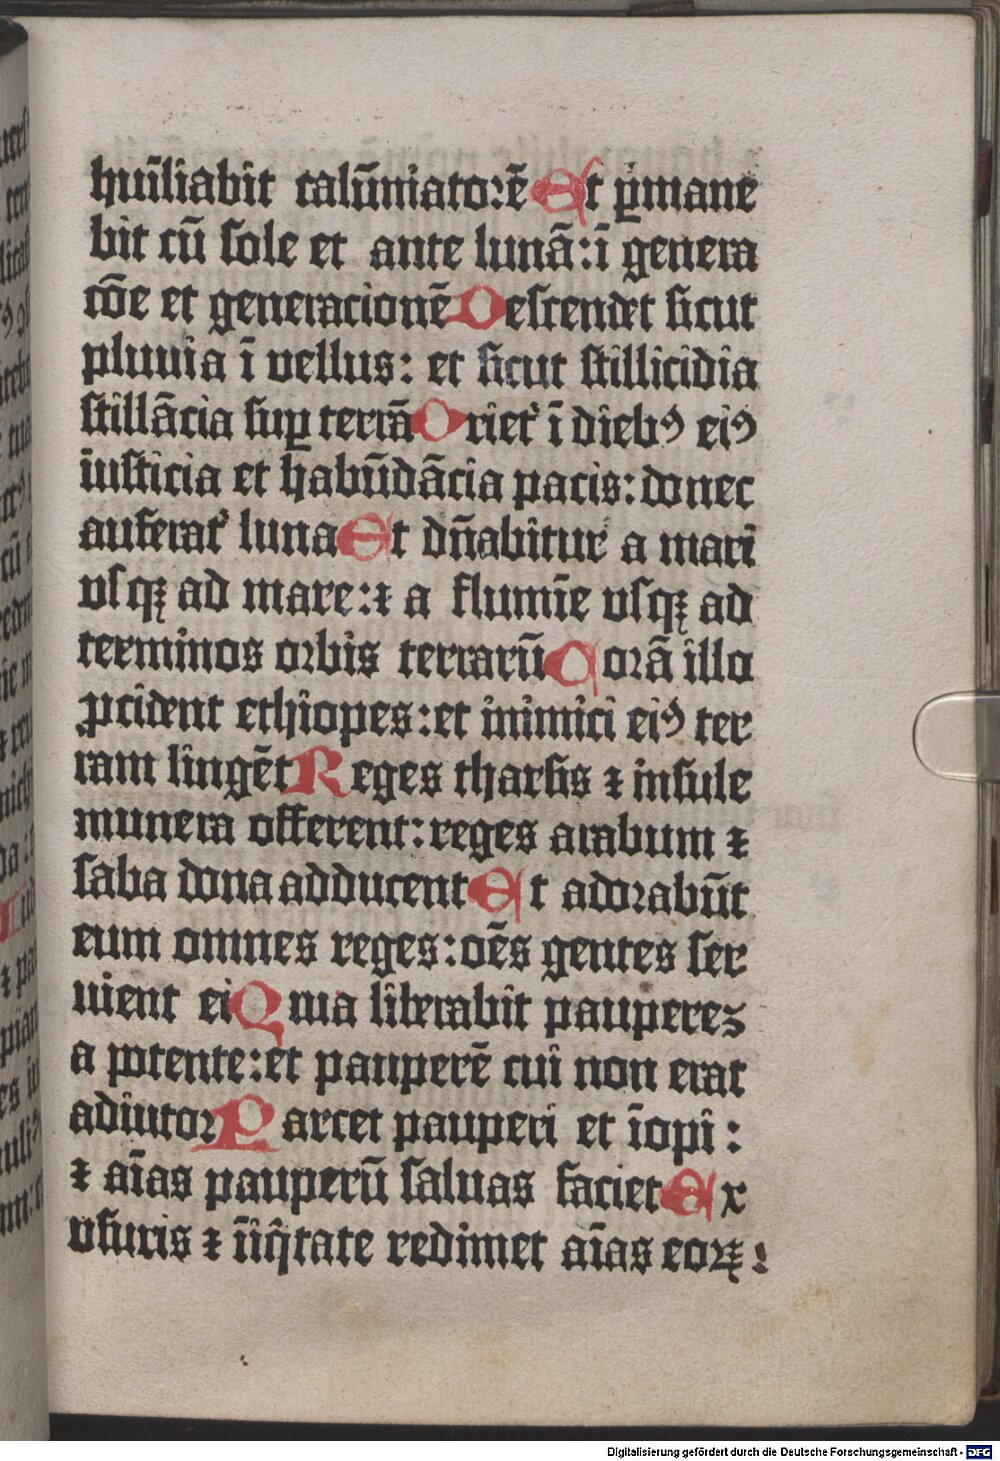 huīliabit calūniatorē Et ꝑmane
bit cū sole et ante lunā: ī genera
cōe et generacionē Descendet sicut
pluuia ī vellus: et sicut stillicidia
stillācia suꝑ terrā Orietᷣ ī diebꝰ eiꝰ
iusticia et habūdācia pacis: donec
auferatᷣ luna Et dn̄abitur a mari
vsqꝫ ad mare: ⁊ a flumīe vsqꝫ ad
terminos orbis terrarū Corā illo
ꝓcident ethiopes: et inimici eiꝰ ter
ram lingēt Reges tharsis ⁊ insule
munera offerent: reges arabum ⁊
saba dona adducent Et adorabūt
eum omnes reges: oēs gentes ser
uient ei Quia liberabit pauperez
a potente: et pauperē cui non erat
adiutor Parcet pauperi et īopi:
⁊ aīas pauperū saluas faciet Ex
vsuris ⁊ īiq̄tate redimet aīas eoꝝ:
Digitalisierung gefördert durch die Deutsche Forschungsgemeinschaft - DFG